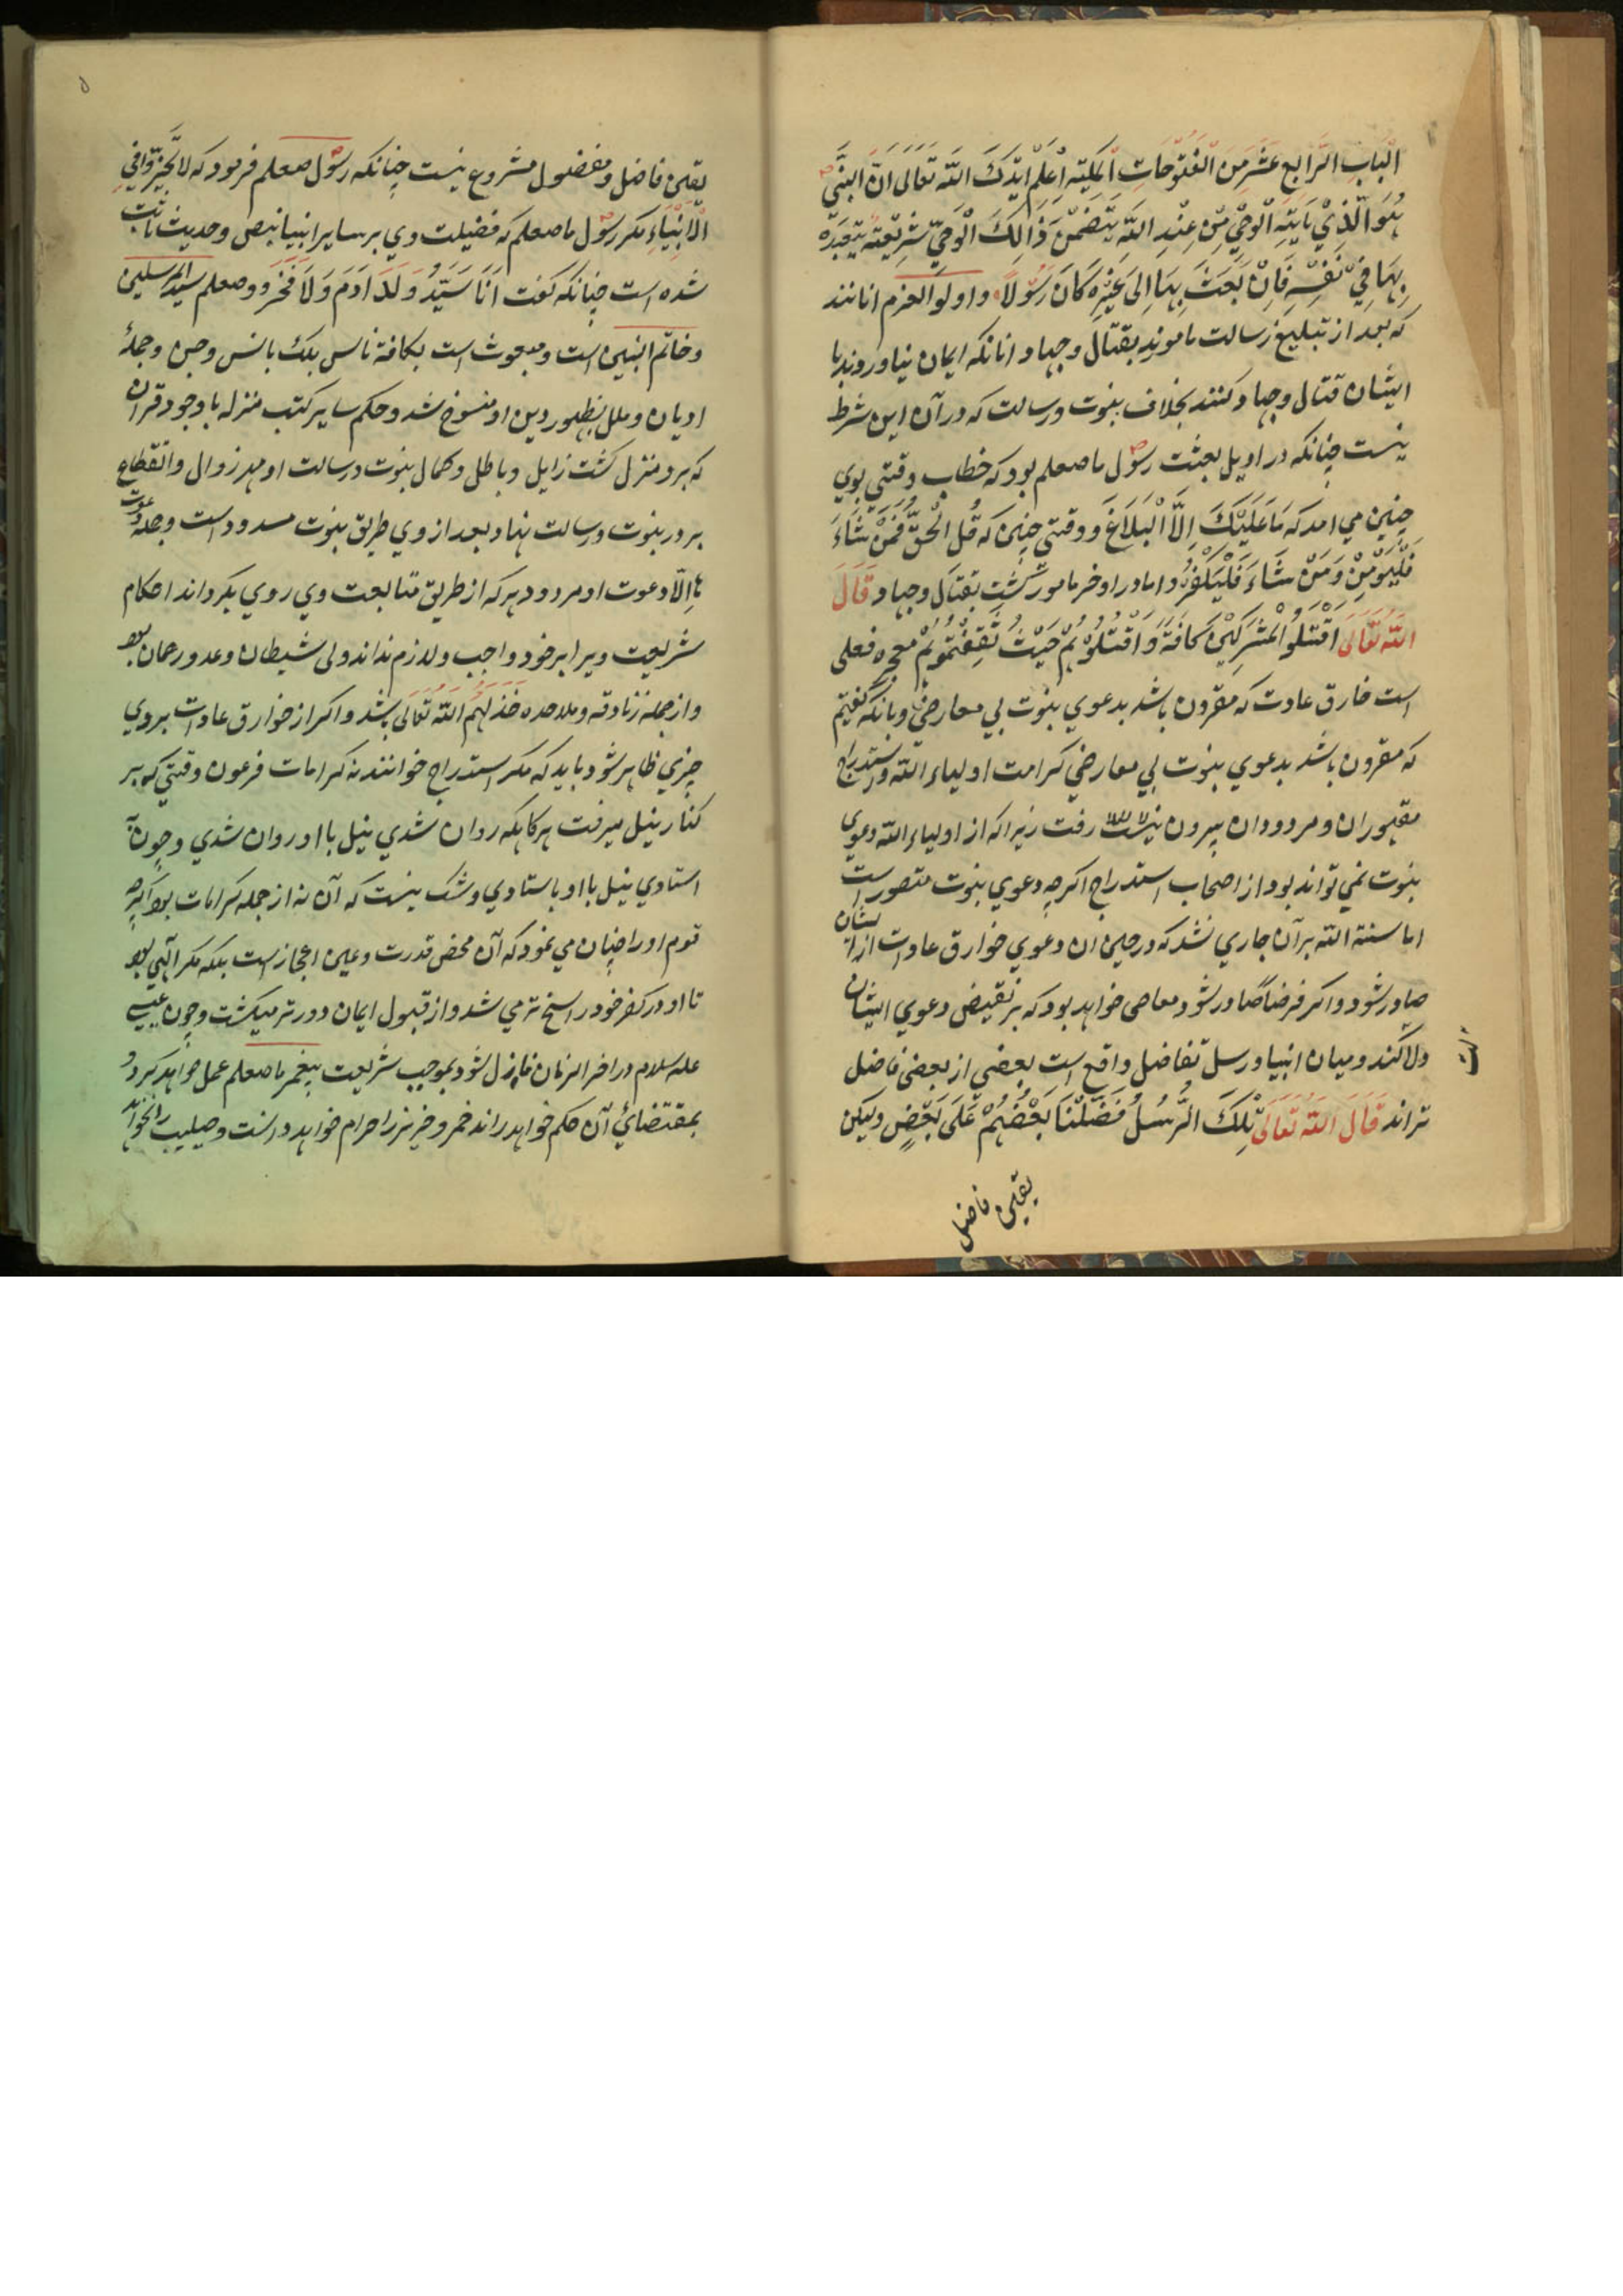 الْبَابِ الرَّابِعِ عَشَرَ مِنَ الْفُتُوْحَاتِ الْمَكِیَّتِه اِعْلَمْ اَیَّدَكَ اللّٰه تَعَالٰی اَنَّ النَّبِیَّ
هُوَ الَّذِيْ یَاتِیْهِ الْوَحْيُ مِنْ عِنْدِ اللّٰهِ یَتَضَمَّنُ ذَالِكَ الْوَحِيُّ شَرِیْعَتَه یَتَعَبَّدُه
بِهَا فِيْ نَفْسِهِ فَاِنْ بَعَثَ بِهَا اِلٰی غَیْرِه كَانَ رَسُوْلًا واولو العزم انانند
که بعد از تبلیغ رسالت مامورند بقتال وجهاد وانانکه ایمان نیاوروند با
ایشان قتال وجهاد کنند بخلاف نبوت ورسالت که در آن این شرط
نیست چنانکه در اوایل بعثت رسول ما صعلم بود که خطاب وقتي بوي
چنین مي امد که مَا عَلَیْكَ اِلَّا الْبَلَاغُ ووقتي چنین که قُلِ الْحَقُّ فَمَنْ شَاءَ
فَلْیُوْمِنْ وَمَنْ شَاءَ فَلْیَکْفُرْ واما در اوخر مامور گشت بقتال وجهاد قَالَ
اللّٰه تَعَالٰی اُقْتُلُوْا الْمُشْرِکِیْنَ کَافَّةً وَاقْتُلُوْهُمْ حَیْثُ ثَقِفْتُمُوْهُمْ معجزه فعلی
است خارق عادت که مقرون باشد بدعوي نبوت بي معارضي وبانکه گفتیم
که مقرون باشد بدعوي نبوت بي معارضي کرامت اولیاء اللّٰه واستدراج
مقهوران ومردودان بیرون رفت زیرا که از اولیاء اللّٰه دعوي
نبوت نمي تواند بود از اصحاب استدراج اگرچه دعوي نبوت متصور است
اما سنة اللّٰه بر آن جاري نشد که در حین ان دعوي خوارق عادات از ایشان
صادر شود واکر فرضاً صادر شود معاصی خواهد بود که بر نقیض دعوي ایشان
دلا کند ومیان انبیا ورسل تفاضل واقع است بعضي از بعضي فاضل
تراند قَالَ اللّٰه تَعَالٰی تِلْكَ الرُّسُلُ فَضَّلْنَا بَعْضُهُمْ عَلٰی بَعْضٍ ولیکن
تعین فاضل
تعین فاضل ومفضول مشروع نیست چنانکه رسول صعلم فرمود که لا تُخَیِّرُوْا فِي
الْاَنْبِیَاءِ مکر رسول ما صعلم که فضیلت وي بر سایر انبیا بنص وحدیث ثابت
شده است چنانکه گفت اَنَا سَیِّدُ وَلَدِ اٰدَمَ وَلَا فَخْرَ ووصعلم سید المرسلین
وخاتم النبیین است ومبعوث است بکافة ناس بلک بانس وجن وجملهٔ
ادیان وملل بظهور دین او منسوخ شد وحکم سایر کتب منزله با وجود قران
که برو منزل گشت زایل وباطل وکمال نبوت ورسالت او مهر زوال وانقطاع
بر در نبوت ورسالت نهاد وبعد از وي طریق نبوت مسدود است وجمله دعوت
ها اِلّا دعوت او مردود هر که از طریق متابعت وي روي بکرداند احکام
شریعت ویرا بر خود واجب ولازم نداند ولی شیطان وعدو رحمان بود
واز جمله زنادقه وملاحده خَذَلَهُمُ اللّٰه تَعَالٰی باشد واکر از خوارق عادات بروي
چیزي ظاهر شود باید که مکر استدراج خوانند نه کرامات فرعون وقتي که بر
کنار نیل میرفت هرگاهکه روان شدي نیل با او روان شدي وچون
استادي نیل با او باستادي وشک نیست که آن نه از جمله کرامات بود اکرچه
قوم او را چنان مي نمود که آن محض قدرت وعین اعجاز است بلکه مکر الهي بود
تا او در کفر خود راسخ تر مي شد واز قبول ایمان دورتر میکشت وچون عیسی
علیه السلام در اخر الزمان نازل شود بموجب شریعت پیغمبر ما صعلم عمل خواهد کرد و
بمقتضائ آن حکم خواهد راند خمر وخنزیر را حرام خواهد دانست وصلیب را نخواند